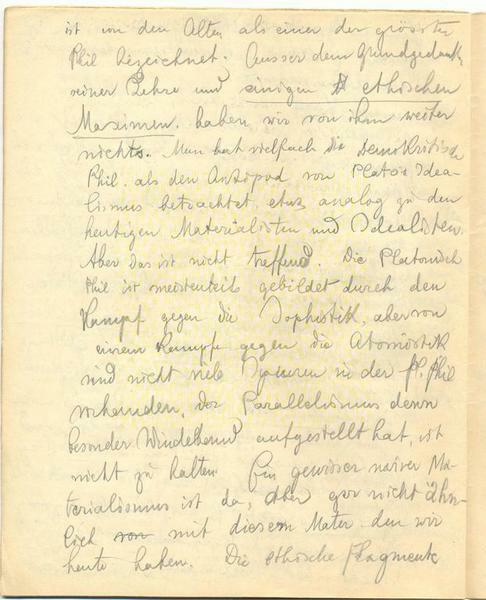 ist von den Alten als einer der grössten
Phil bezeichnet. Ausser dem Grundgedank.
seiner Lehre und einigen ethischen
Maximen. haben wir von ihm weiter
nichts. Man hat vielfach die Demokritische
Phil. als den Antipod von Platos Idea-
lismus betrachtet, etwa analog zu den
heutigen Materialisten und Idealisten.
Aber das ist nicht treffend. Die Platonisch
Phil ist meistenteils gebildet durch den
Kampf gegen die Sophistik, aber von
einem Kampfe gegen die Atomistik
sind nicht viele Spuren in der Pl. Phil
vorhanden, der Parallelismus denn
besonder Windelband aufgestellt hat, ist
nicht zu halten. Ein gewisser naiver Ma-
terialismus ist da, aber gar nicht ähn-
lich von mit diesem Mater. den wir
heute haben. Die ethische Fragmente